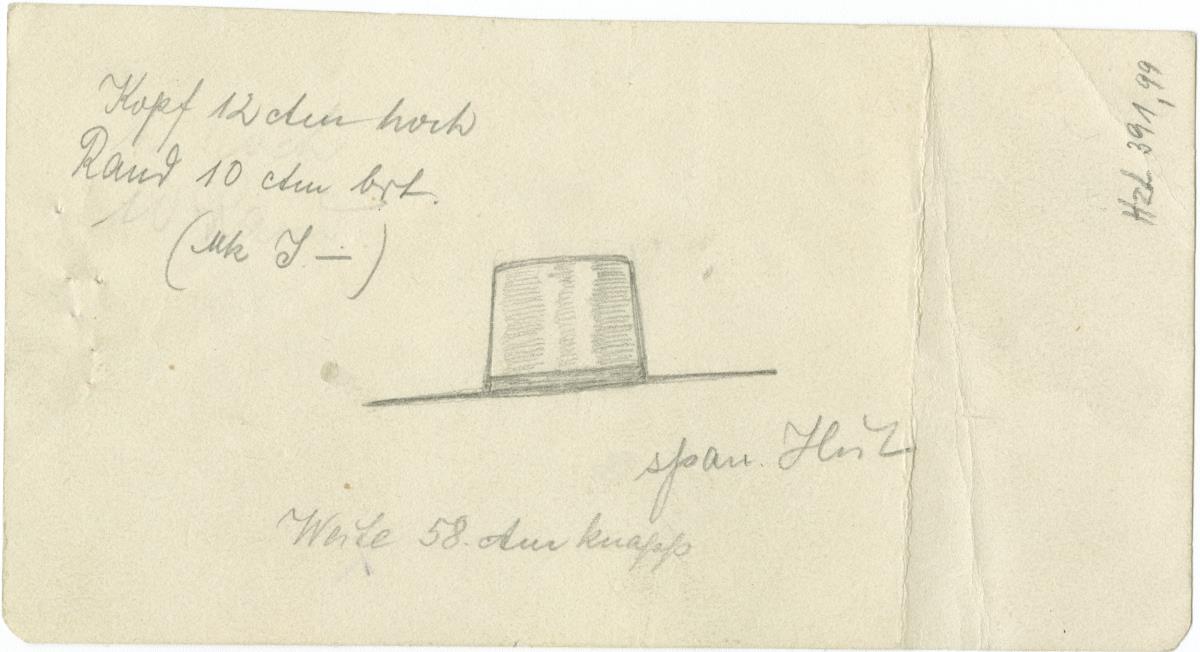 Kopf 12 ctm hoch
Rand 10 ctm brt.
(Mk
span. Hut
Weite 58. ctm knapp
Hzl 391,99